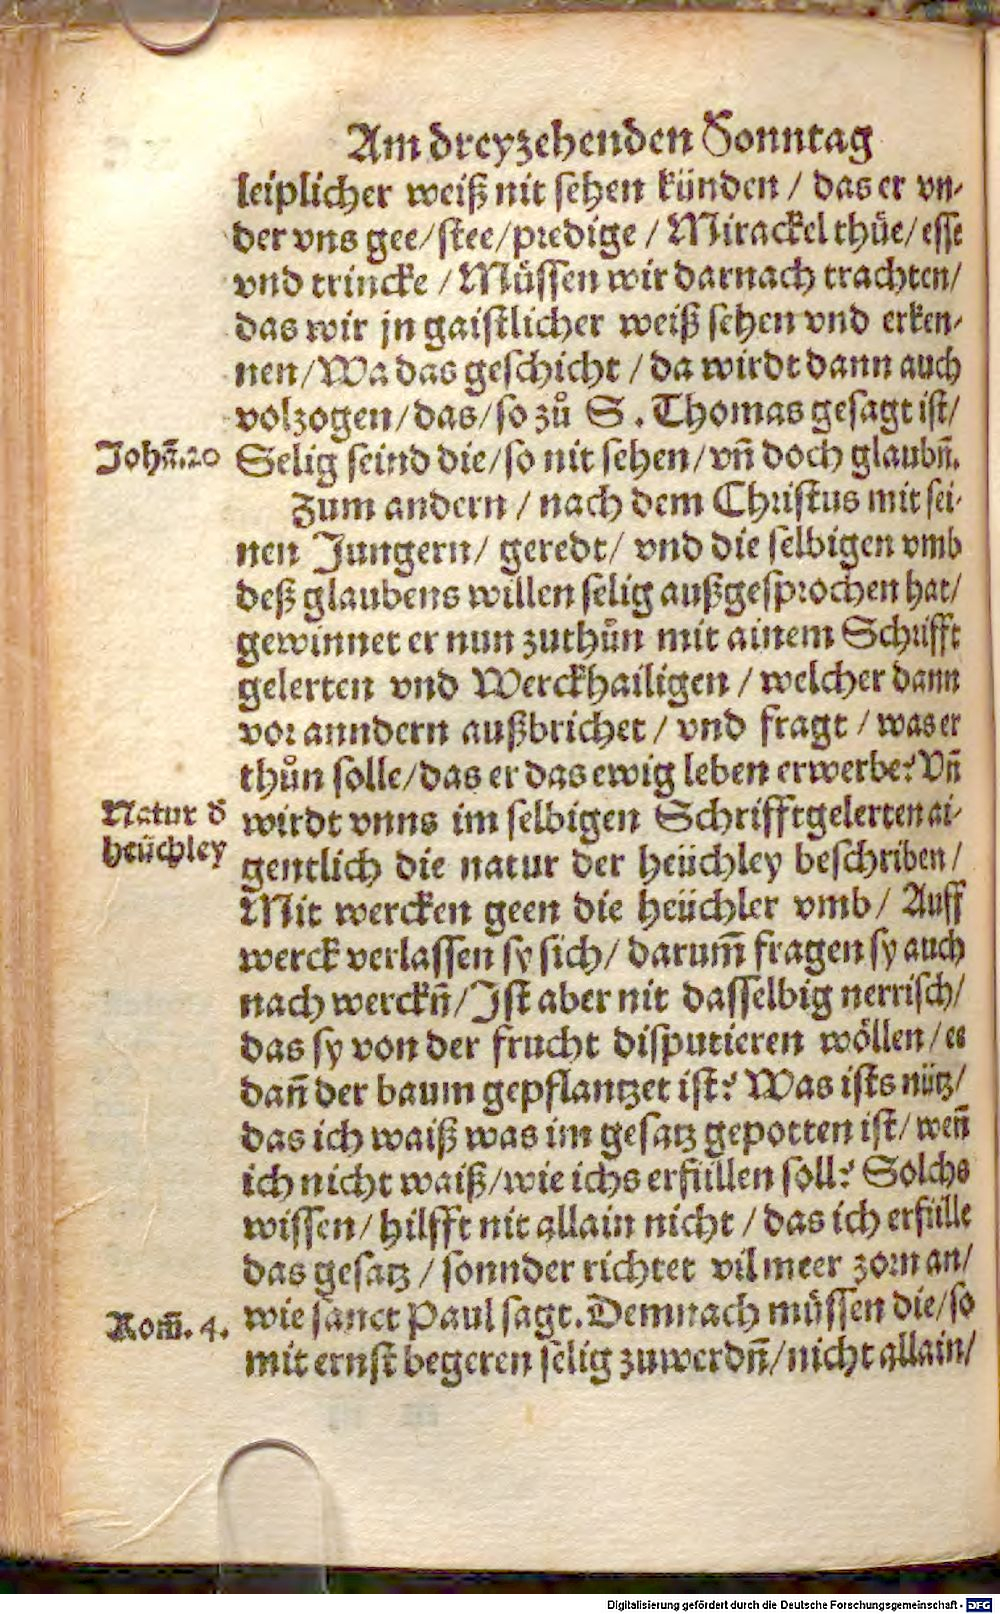 Am dreyzehenden Sonntag
leiplicher weiß nit sehen künden / das er vn-
der vns gee / stee / predige / Mirackel thüe / esse
vnd trincke / Müssen wir darnach trachten /
das wir jn gaistlicher weiß sehen vnd erken-
nen / Wa das geschicht / da wirdt dann auch
volzogen / das / so zů S. Thomas gesagt ist /
Johā.20
Selig seind die / so nit sehen / vñ doch glaubñ.
Zum andern / nach dem Christus mit sei-
nen Jungern / geredt / vnd die selbigen vmb
deß glaubens willen selig außgesprochen hat /
gewinnet er nun zuthůn mit ainem Schrifft
gelerten vnd Werckhailigen / welcher dann
vor anndern außbrichet / vnd fragt / was er
thůn solle / das er das ewig leben erwerbe? Vñ
Natur d̄
heüchley
wirdt vnns im selbigen Schrifftgelerten ai-
gentlich die natur der heüchley beschriben /
Mit wercken geen die heüchler vmb / Auff
werck verlassen sy sich / darum̄ fragen sy auch
nach werckñ / Jst aber nit dasselbig nerrisch /
das sy von der frucht disputieren wöllen / ee
dañ der baum gepflantzet ist? Was ists nütz /
das ich waiß was im gesatz gepotten ist / weñ
ich nicht waiß / wie ichs erfüllen soll? Solchs
wissen / hilfft nit allain nicht / das ich erfülle
das gesatz / sonnder richtet vil meer zorn an /
Rom̄. 4.
wie sanct Paul sagt. Demnach müssen die / so
mit ernst begeren selig zuwerdñ / nicht allain /
Digitalisierung gefördert durch die Deutsche Forschungsgemeinschaft - DFG